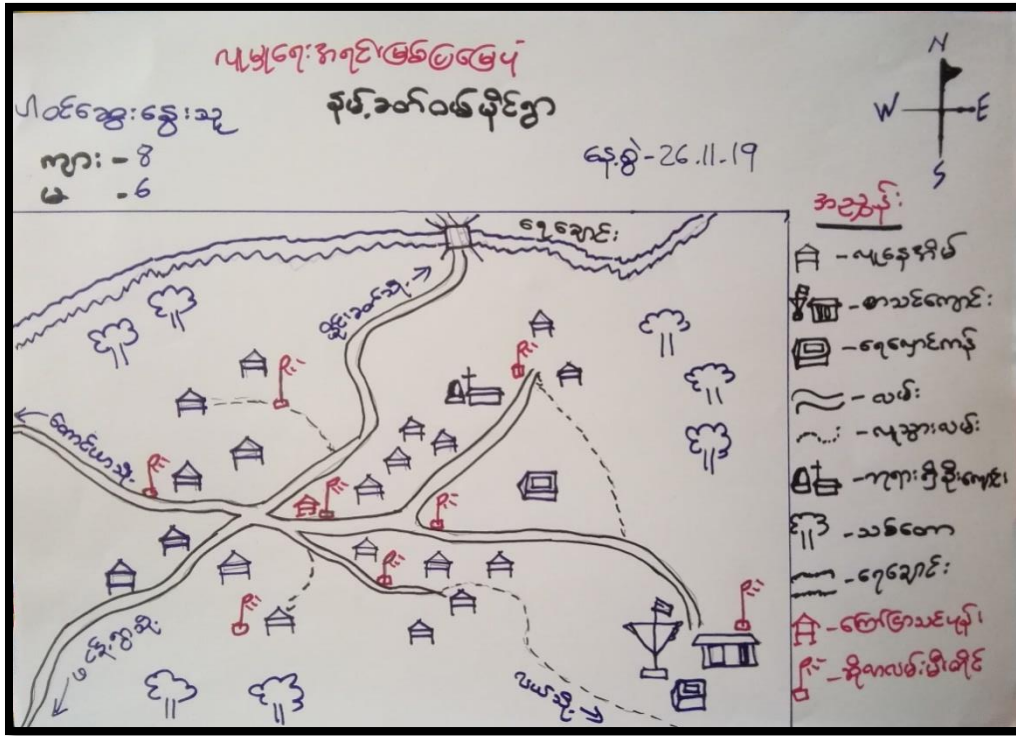 လူမှုရေးအရင်းမြစ်ပြမြေပုံ
နမ့်ခတ်ဝယ်မိုင်ရွာ
ပါဝင်ဆွေးနွေးသူ
ကျား - 8
မ - 6
နေ့စွဲ - 26.11.19
N
W
E
S
ရေချောင်း
တောင်ယာသို့
လယ်သို့
အညွှန်း
- လူနေအိမ်
- စာသင်ကျောင်း
- ရေလှောင်ကန်
- လမ်း
- လူသွားလမ်း
- ဘုရားရှိခိုးကျောင်း
- သစ်တော
- ရေချောင်း
- ကြော်ငြာသင်ပုန်း
- ဆိုလာလမ်းမီးတိုင်